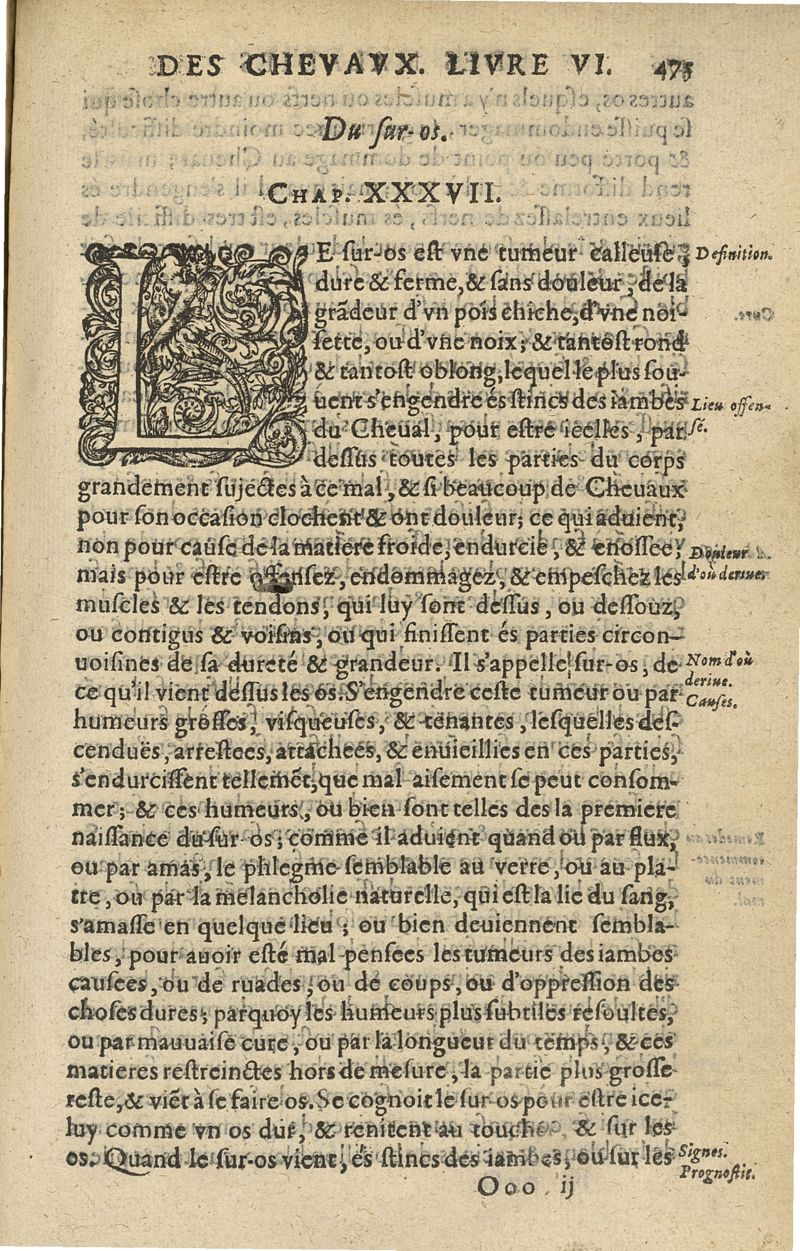 DES CHEVAVX. LIVRE VI. 475
Du sur-os.
CHAP. XXXVII.
LE sur-os est vne tumeur calleuse,
dure & ferme, & sans douleur, de la
grãdeur d'vn pois chiche, d'vne noi-
sette, ou d'vne noix; & tantost rond
& tantost oblong, lequel le plus sou-
uent s'engendre és stincs des iambes
du Cheual, pour estre icelles, par
dessus toutes les parties du corps
grandement sujectes à ce mal, & si beaucoup de Cheuaux
pour son occasion clochent & ont douleur; ce qui aduient,
non pour cause de la matiere froide, endurcie, & enossee,
mais pour estre offensez, endommagez, & empeschez les
muscles & les tendons, qui luy sont dessus, ou dessouz,
ou contigus & voisins, ou qui finissent és parties circon-
uoisines de sa dureté & grandeur. Il s'appelle sur-os, de
ce qu'il vient dessus les os. S'engendre ceste tumeur ou par
humeurs grosses, visqueuses, & tenantes, lesquelles des-
cenduës, arrestees, attachees, & enuieillies en ces parties,
s'endurcissent tellemẽt, que mal aisement se peut consom-
mer; & ces humeurs, ou bien sont telles des la premiere
naissance du sur-os; comme il aduient quand ou par flux,
ou par amas, le phlegme semblable au verre, ou au pla-
tre, ou par la melancholie naturelle, qui est la lie du sang,
s'amasse en quelque lieu; ou bien deuiennent sembla-
bles, pour auoir esté mal pensees les tumeurs des iambes
causees, ou de ruades, ou de coups, ou d'oppression des
choses dures; parquoy les humeurs plus subtiles resoultes,
ou par mauuaise cure, ou par la longueur du temps, & ces
matieres restreinctes hors de mesure, la partie plus grosse
reste, & viẽt à se faire os. Se cognoit le sur-os pour estre ice-
luy comme vn os dur, & renitent au touche, & sur les
os. Quand le sur-os vient, és stincs des iambes, ou sur les
Ooo ij
Definition.
Lieu offen-
sé.
Douleur
d'où deriuee
Nom d'où
deriue.
Causes.
Signes.
Prognostic.